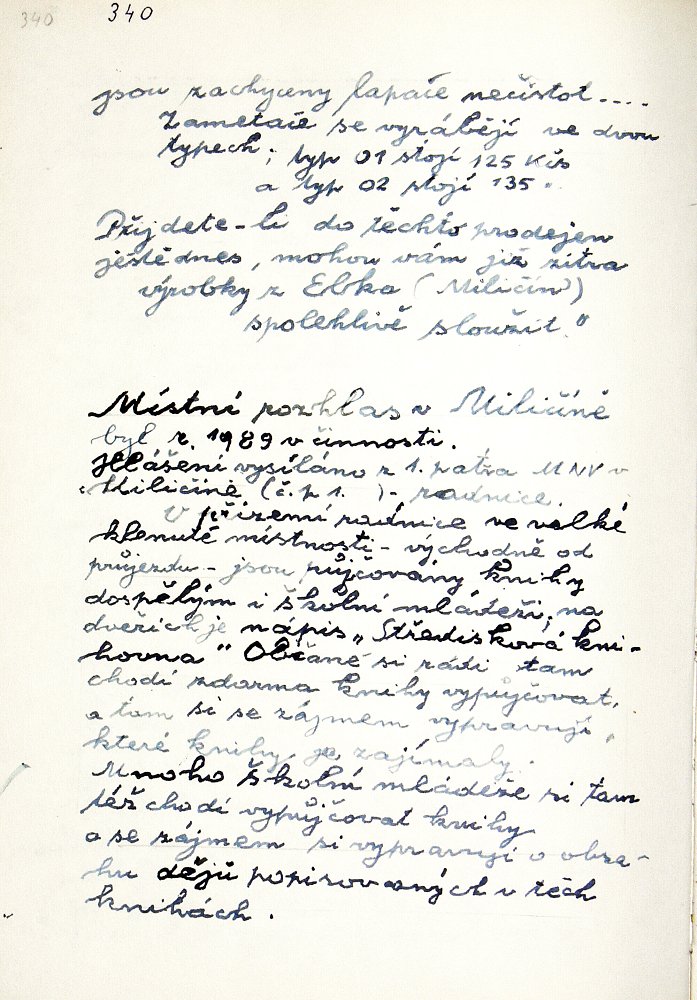 340
340
jsou zachyceny lapače nečistot....
Zametače se vyrábějí ve dvou
typech; typ 01 stojí 125 Kčs
a typ 02 stojí 135 „.
Přijdete-li do těchto prodejen
ještě dnes, mohou vám již zítra
výrobky z Elbka (Miličín)
spolehlivě sloužit."
Místní rozhlas v Miličíně
byl r. 1989 v činnosti.
Hlášení vysíláno z 1. patra MNV v
Miličíně (č.p 1. ) - radnice.
V přízemí radnice ve velké
klenuté místnosti - východně od
průjezdu - jsou půjčovány knihy
dospělým i školní mládeži; na
dveřích je nápis „Středisková kni-
hovna" Občané si rádi tam
chodí zdarma knihy vypůjčovat,
a tam si se zájmem vypravují,
které knihy je zajímaly.
Mnoho školní mládeže si tam
též chodí vypůjčovat knihy
a se zájmem si vypravují o obsa-
hu dějů popisovaných v těch
knihách.